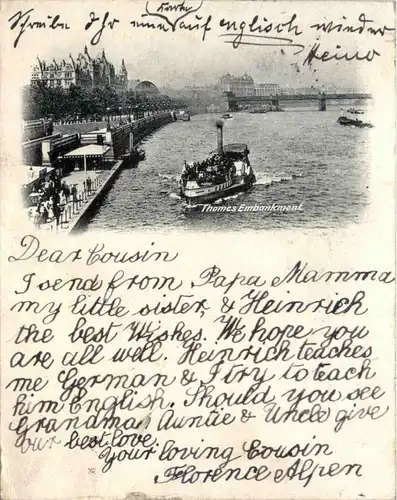 Schreibe Ihr eine Karte auf englisch wieder
Heino
Thames Embankment
Dear Cousin
I send from Papa Mamma
my little sister, & Heinrich
the best Wishes. We hope you
are all well. Heinrich teaches
me German & I try to teach
him English. Should you see
Grandma Auntie & Uncle give
our best love.
Your loving Cousin
Florence Alpen